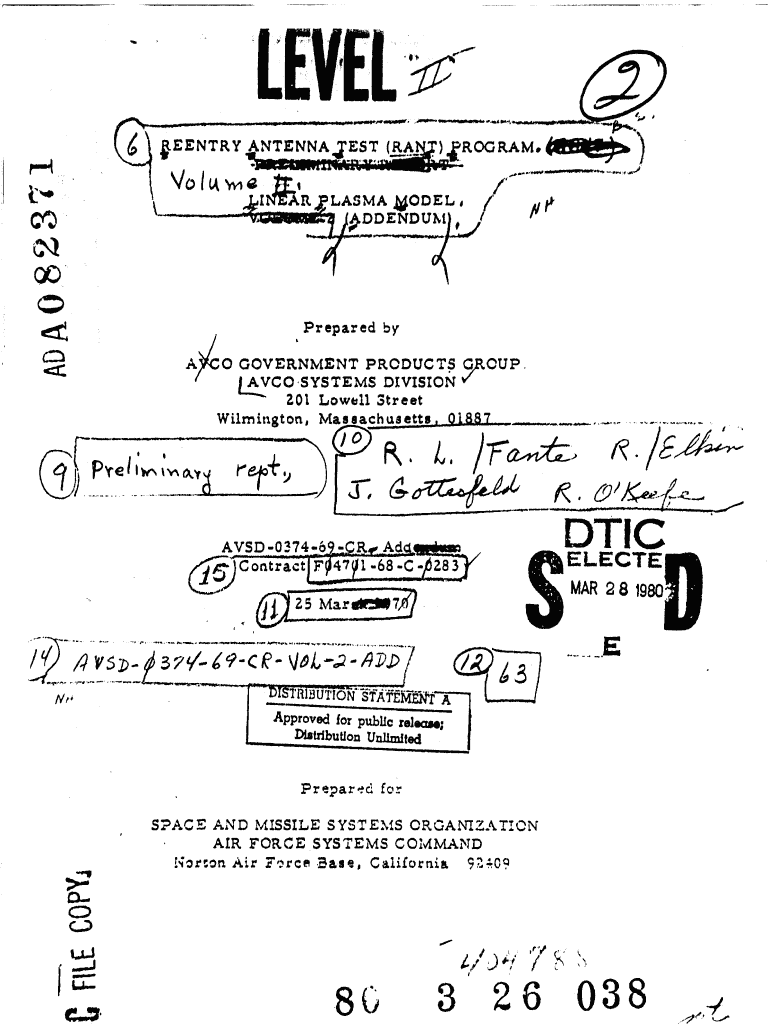 LEVEL II
2
6 REENTRY ANTENNA TEST (RANT) PROGRAM.
Volume II.
LINEAR PLASMA MODEL.
(ADDENDUM).
NH
ADA082371
Prepared by
AVCO GOVERNMENT PRODUCTS GROUP
AVCO SYSTEMS DIVISION
201 Lowell Street
Wilmington, Massachusetts, 01887
9 Preliminary rept.,
10 R. L. /Fante R. /Elkin
J. Gottesfeld R. O'Keefe
AVSD-0374-69-CR, Add
15 Contract F04701-68-C-0283
11 25 Mar 70
DTIC
SELECTED
MAR 28 1980
E
14 AVSD-0374-69-CR-VOL-2-ADD
12 63
NH
DISTRIBUTION STATEMENT A
Approved for public release;
Distribution Unlimited
Prepared for
SPACE AND MISSILE SYSTEMS ORGANIZATION
AIR FORCE SYSTEMS COMMAND
Norton Air Force Base, California 92409
FILE COPY
404788
80 3 26 038